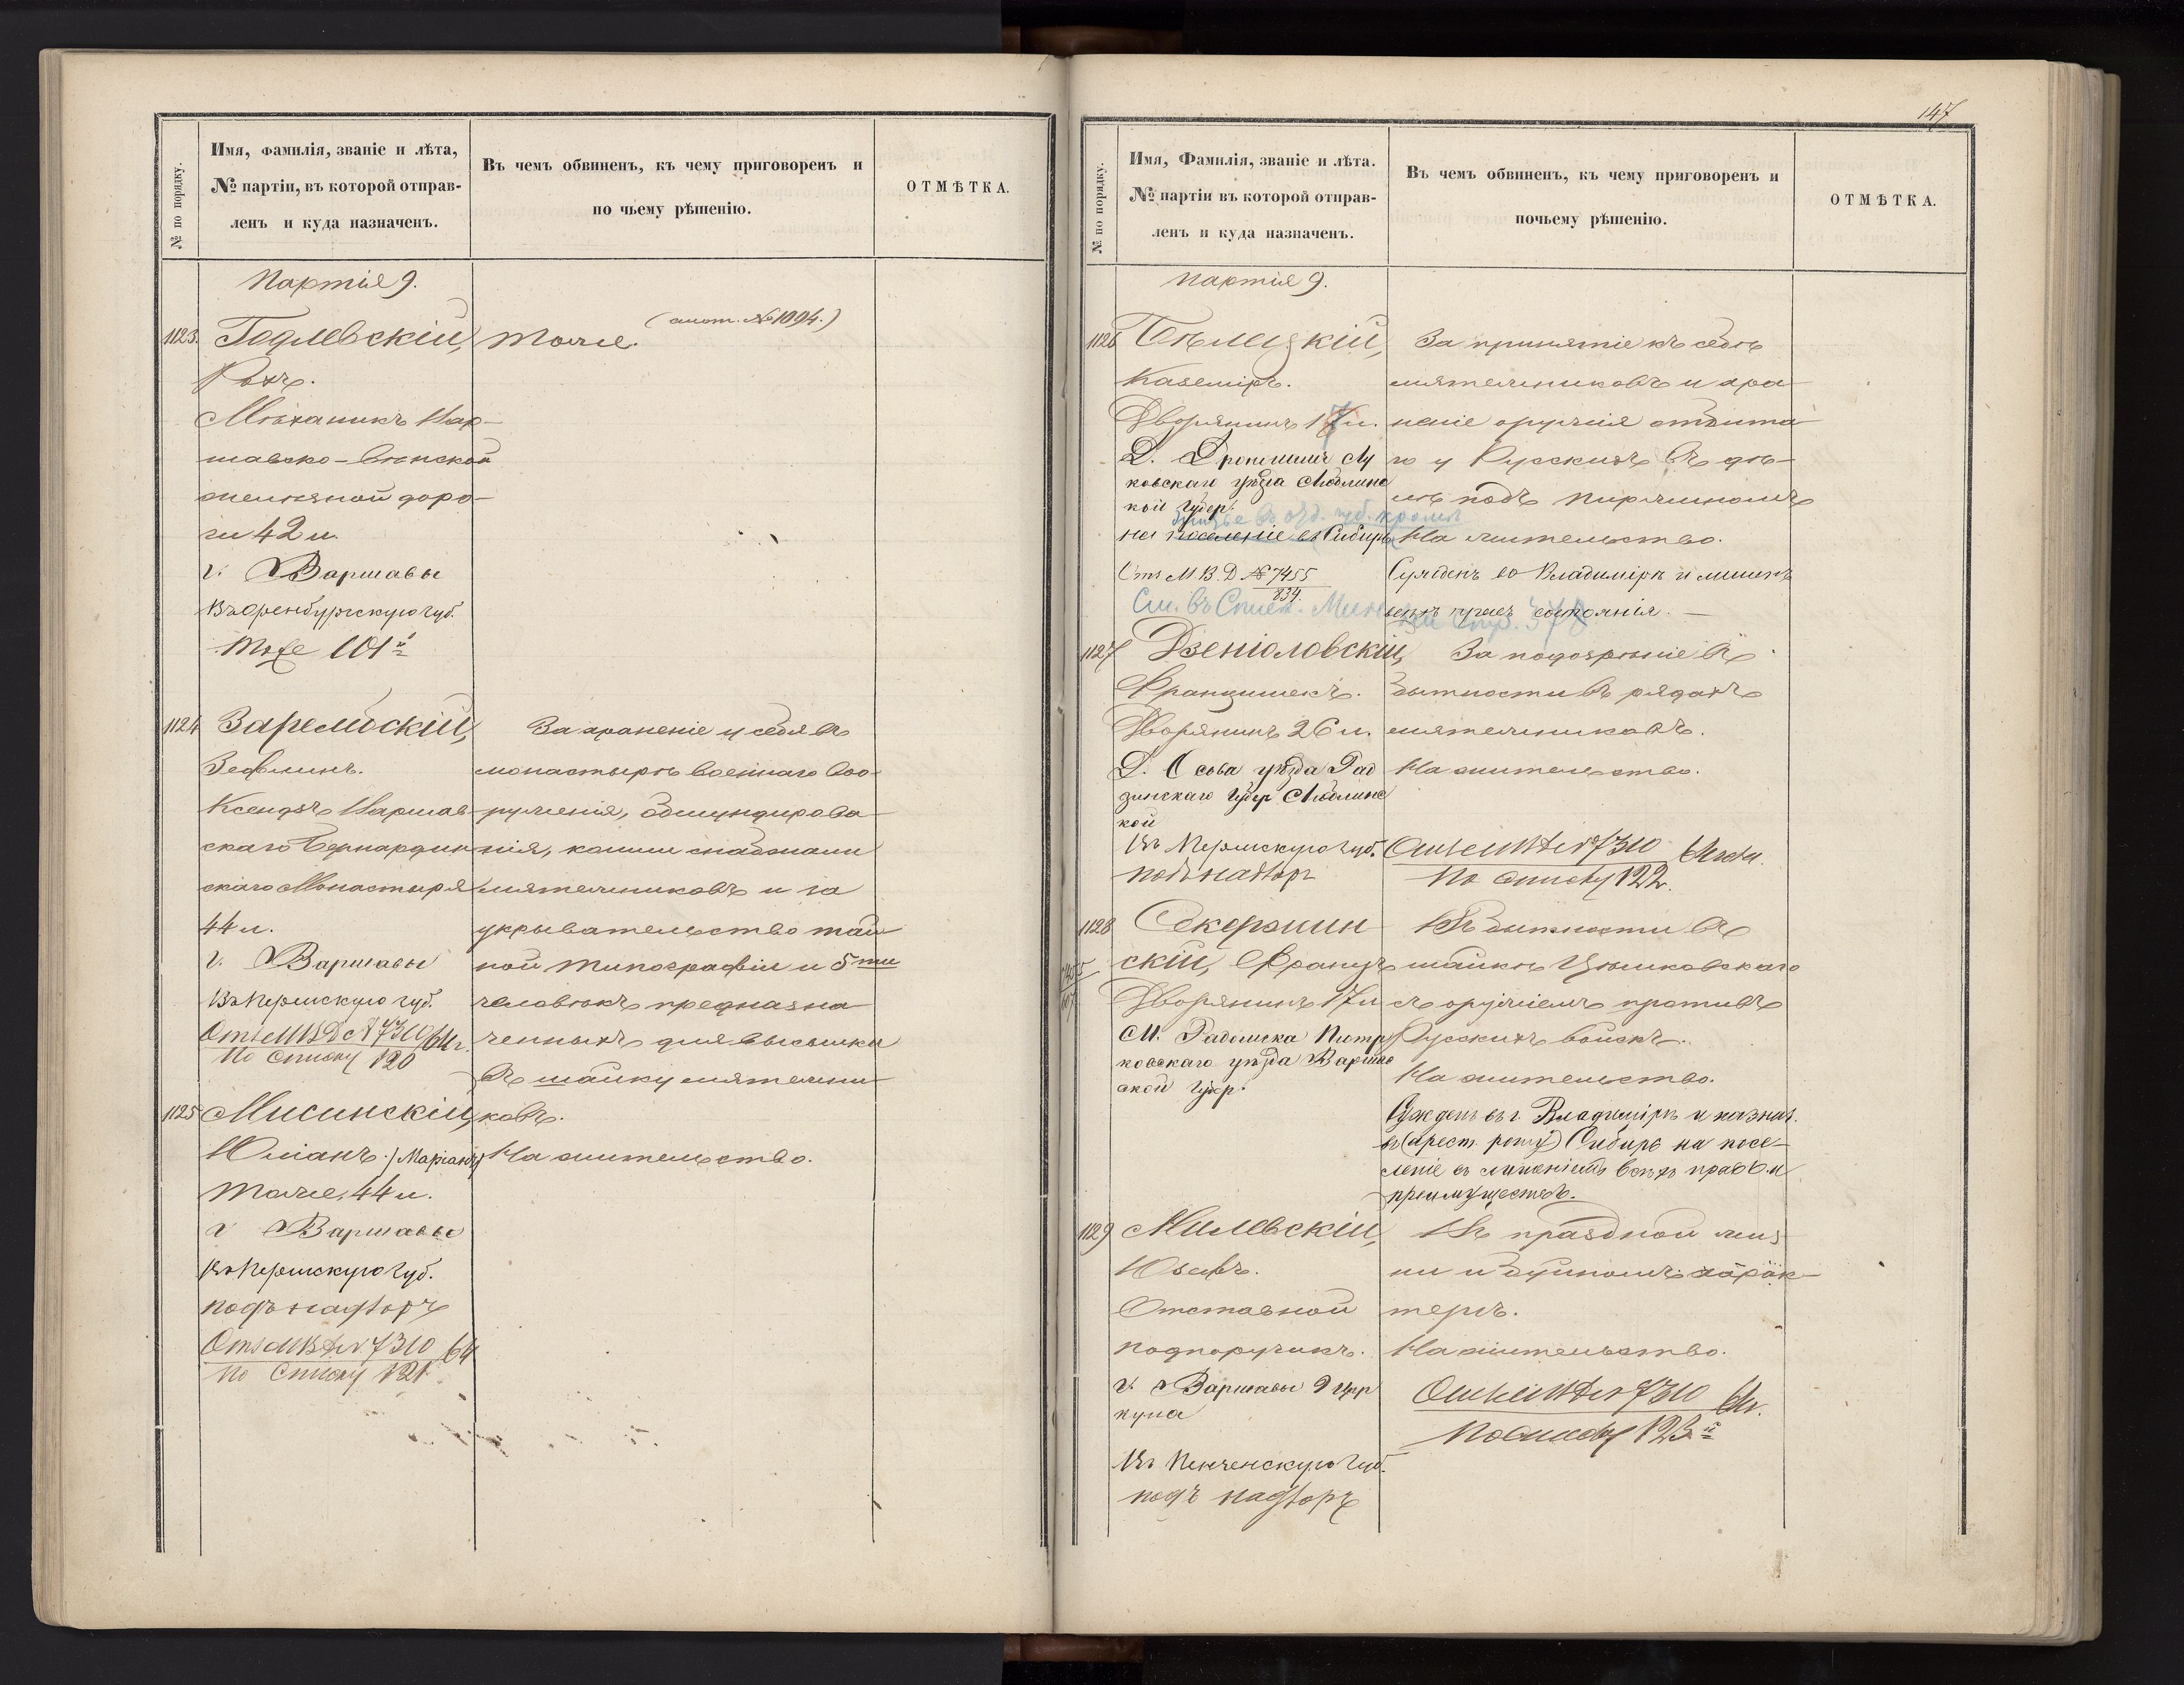 № по порядку.
Имя, фамилія, званіе и лѣта,
№ партіи, въ которой отправ-
ленъ и куда назначенъ.
Въ чемъ обвиненъ, къ чему приговоренъ и
по чьему рѣшенію.
ОТМѢТКА.
Партія 9.
1123. Годлевскій,
Рохъ.
Механикъ Вар-
шавско-Вѣнской
желѣзной доро-
ги 42 л.
г. Варшавы
Въ Оренбургскую губ.
Тоже 101й
Тоже. (смот. № 1094.)
1124 Зарембскій,
Зефлинъ.
Ксендзъ Варшав-
скаго Бернардин-
скаго Монастыря
44 л.
г. Варшавы
Въ Пермскую губ.
Отз МВД № 7310/64 г.
По Списку 120
За храненіе у себя въ
монастырѣ военнаго воо-
руженія, обмундирова-
нія, коими снабжали
мятежниковъ и за
укрывательство тай-
ной типографіи и 5ти
человѣкъ предназна-
ченныхъ для высылки
въ шайку мятежни-
ковъ.
На жительство.
1125 Мисинскій,
Юліанъ (Маріанъ)
Тоже, 44 л.
г. Варшавы
Въ Пермскую губ.
подъ надзоръ
Отз МВД № 7310/64
По Списку 121.
147
№ по порядку.
Имя, Фамилія, званіе и лѣта.
№ партіи въ которой отправ-
ленъ и куда назначенъ.
Въ чемъ обвиненъ, къ чему приговоренъ и
почьему рѣшенію.
ОТМѢТКА.
Партія 9.
1126 Бѣлецкій,
Каземіръ.
Дворянинъ 17 л.
Д. Лу
ковскаго уѣзда Люблинс
кой Губер.
на поселеніе въ Сибирь
Отз М.В.Д № 7455
834
См. въ Спис.
За принятіе къ себѣ
мятежниковъ и хра-
неніе оружія отбита-
го у Русскихъ въ дѣ-
лѣ подъ
На жительство.
Сужденъ во Владимірѣ и лишенъ
всѣхъ правъ состоянія.
1127 Дзеніоловскій,
Францишекъ.
Дворянинъ 26 л.
Д. Осова уѣзда Рад
зинскаго Губер Люблинс
кой
Въ Пермскую губ.
подъ надзоръ
За подозрѣніе въ
бытности въ рядахъ
мятежниковъ.
На жительство.
Отз МВД № 7310
По списку 122.
1128 Секержин-
скій, Францъ
Дворянинъ 17 л
М. Радомска Піотр
ковскаго уѣзда Варшав
ской Губер.
Въ бытности въ
шайкѣ Цѣшковскаго
съ оружіемъ противъ
Русскихъ войскъ.
На жительство.
Сужденъ въ г. Владимірѣ и назнач.
въ (арест. роту) Сибирь на посе-
леніе съ лишеніемъ всѣхъ правъ и
преимуществъ.
1129 Милевскій,
Юзефъ.
Отставной
подпоручикъ.
г. Варшавы 9 Цир
кула
Въ Пензенскую губ.
подъ надзоръ
Въ праздной жиз-
ни и буйномъ харак-
терѣ.
На жительство.
Отз МВД № 7310 64 г.
По списку 123й